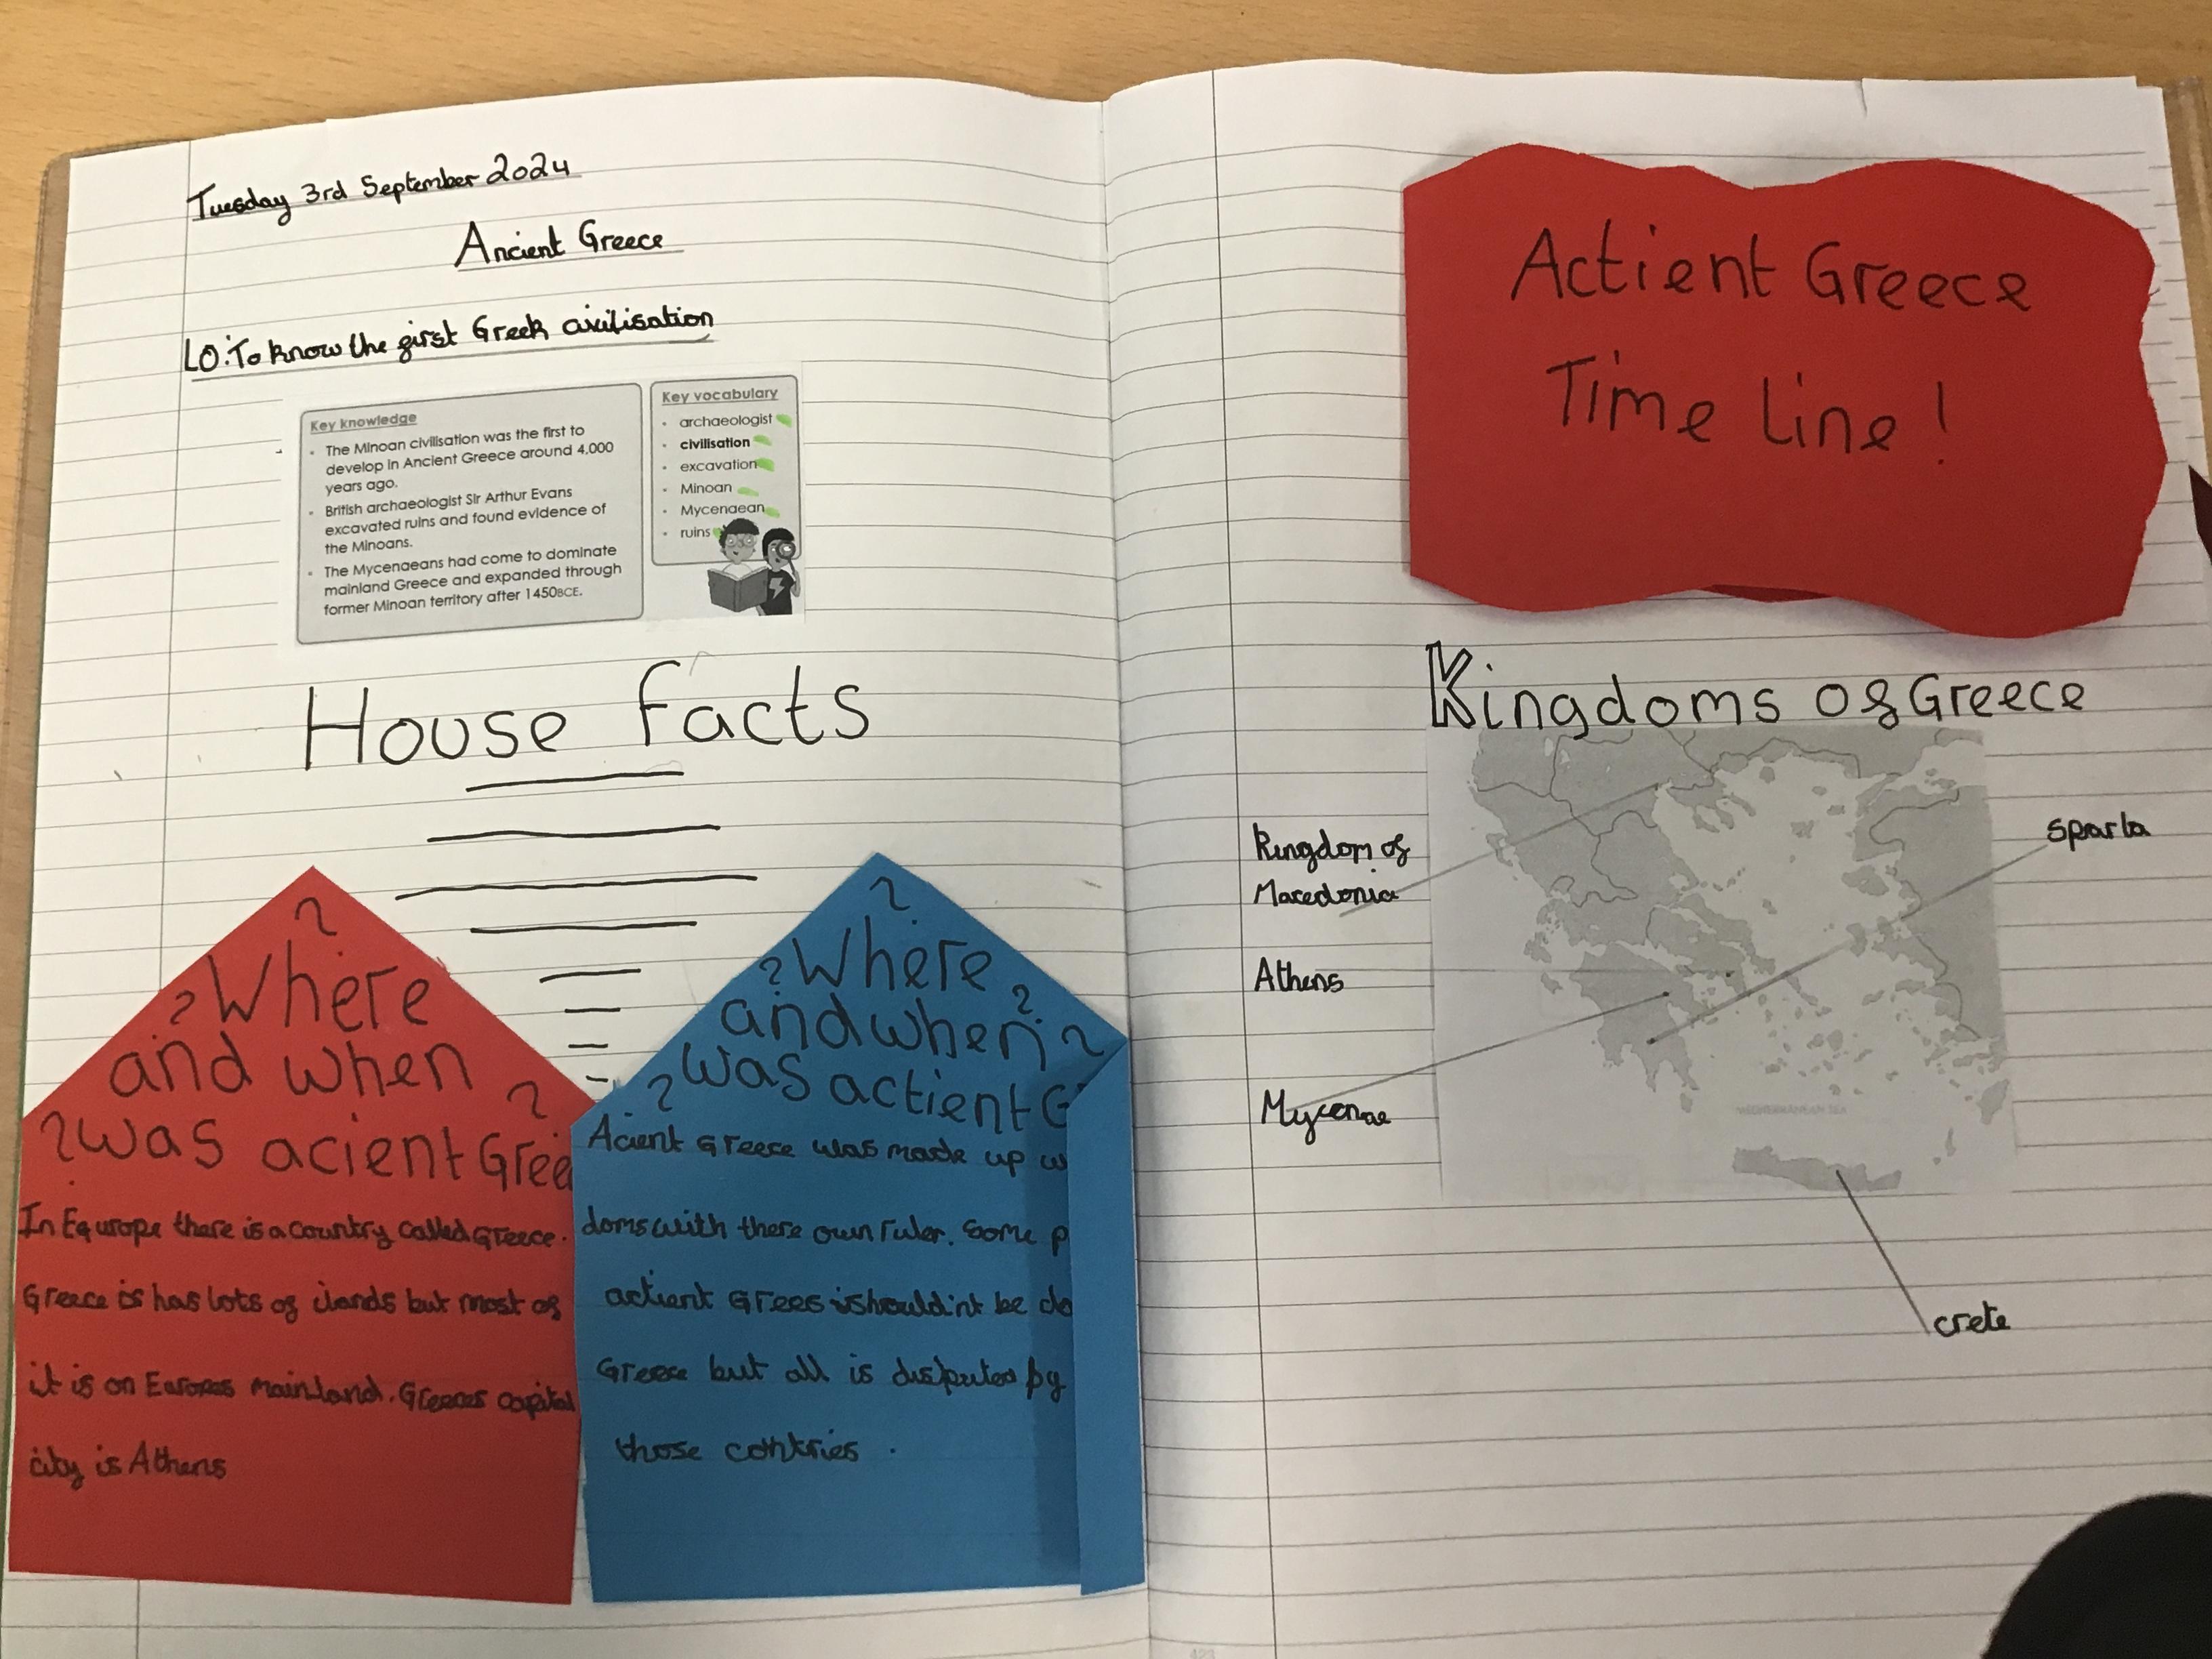 Tuesday 3rd September 2024
Ancient Greece
LO: To know the first Greek civilisation
Key knowledge
• The Minoan civilisation was the first to
develop in Ancient Greece around 4,000
years ago.
• British archaeologist Sir Arthur Evans
excavated ruins and found evidence of
the Minoans.
• The Mycenaeans had come to dominate
mainland Greece and expanded through
former Minoan territory after 1450BCE.
Key vocabulary
• archaeologist
• civilisation
• excavation
• Minoan
• Mycenaean
• ruins
House facts
?
? Where
and when ?
? was acient Gree
In Equrope there is a country called Greece.
Greece is has lots of ilands but most of
it is on Euroaes mainland. Greeces capital
city is Athens
?
? Where ?
and when ?
? was actient G
Acient Greece was made up w
doms with there own ruler. Some p
actient Grees ishouldint be do
Greece but all is disputed by
those contries .
Actient Greece
Time line!
Kingdoms of Greece
Kingdom of
Macedonia
Sparta
Athens
Mycenae
MEDITERRANEAN SEA
crete